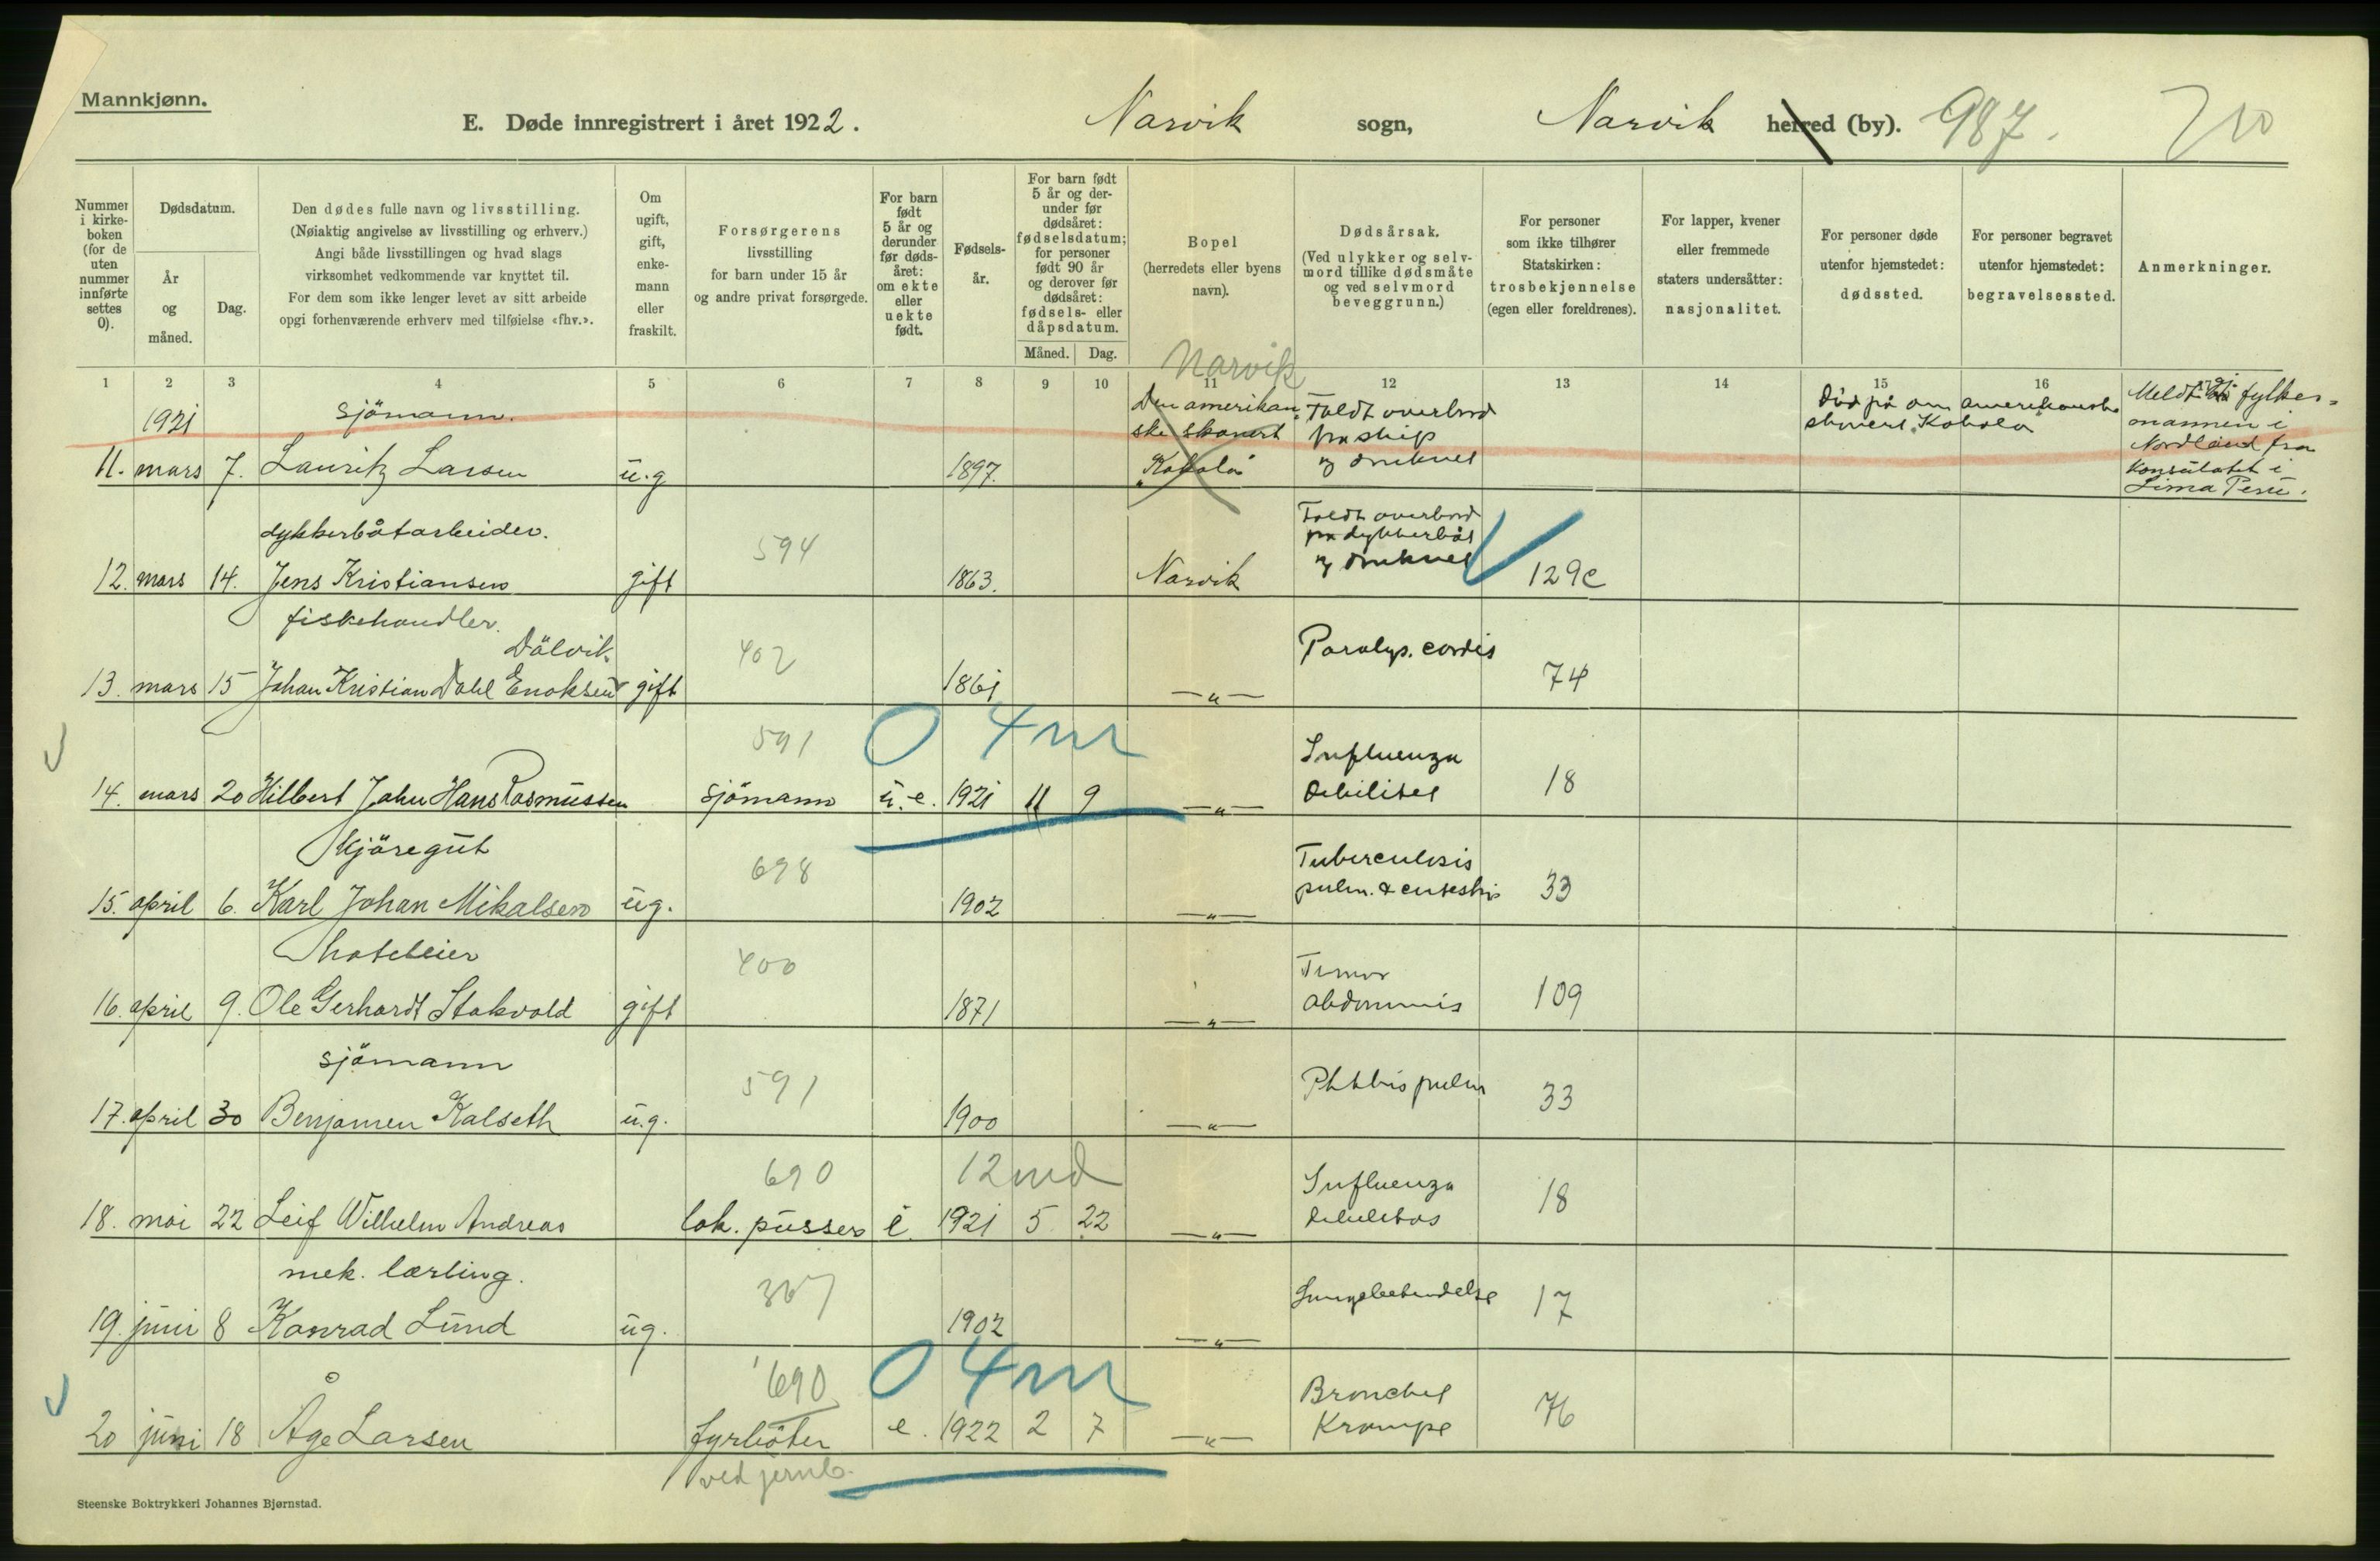 Mannkjønn.
E. Døde innregistrert i året 1922. Narvik sogn, Narvik herred (by). 987.
Nummer i kirkeboken (for de uten nummer innførte settes 0).
Dødsdatum.
År og måned.
Dag.
Den dødes fulle navn og livsstilling.
(Nøiaktig angivelse av livsstilling og erhverv.)
Angi både livsstillingen og hvad slags
virksomhet vedkommende var knyttet til.
For dem som ikke lenger levet av sitt arbeide
opgi forhenværende erhverv med tilføielse «fhv.».
Om ugift, gift, enkemann eller fraskilt.
Forsørgerens
livsstilling
for barn under 15 år
og andre privat forsørgede.
For barn født 5 år og derunder før dødsåret: om ekte eller uekte født.
Fødselsår.
For barn født 5 år og derunder før dødsåret: fødselsdatum; for personer født 90 år og derover før dødsåret: fødsels- eller dåpsdatum.
Måned. Dag.
Bopel
(herredets eller byens navn).
Dødsårsak.
(Ved ulykker og selvmord tillike dødsmåte og ved selvmord beveggrunn.)
For personer
som ikke tilhører
Statskirken:
trosbekjennelse
(egen eller foreldrenes).
For lapper, kvener
eller fremmede
staters undersåtter:
nasjonalitet.
For personer døde
utenfor hjemstedet:
dødssted.
For personer begravet
utenfor hjemstedet:
begravelsessted.
Anmerkninger.
1 2 3 4 5 6 7 8 9 10 11 12 13 14 15 16
Narvik
1921 sjömann.
11. mars 7. Lauritz Larsen u.g 1897.
Den amerikanske skonert "Kohala"
Faldt overbord fra skip og druknet
Död på am amerikanske skonert "Kohala"
Meldt fylkesmannen i Nordland fra Konsulatet i Lima Peru.
dykkerbåtarbeider. 594
12. mars 14. Jens Kristiansen gift 1863. Narvik
Faldt overbord fra dykkerbåt og druknet
129c
fiskehandler. Dålvik. 402
13. mars 15 Johan Kristian Dahl Enoksen gift 1861 —"— Paralys. cordis 74
591 0 4 m
14. mars 20 Hilbert John Hans Rasmussen sjömann u.e. 1921 11 9 —"— Influenza Debilitet 18
Kjöregut 698
15. april 6. Karl Johan Mikalsen ug. 1902 —"— Tuberculosis pulm. & 33
hoteleier 400
16. april 9. Ole Gerhardt Stokvold gift 1871 —"— Tumor abdominis 109
sjömann 591
17. april 30 Benjamen Kalseth u.g. 1900 —"— Phthis pulm 33
690 12 md
18. mai 22 Leif Wilhelm Andreas lok. pusser e. 1921 5. 22 —"— Influenza 18
mek. lærling. 367
19. juni 8 Konrad Lund ug. 1902 —"— Lungebetendelse 17
690 0 4 m
20 juni 18 Åge Larsen fyrböter e. 1922 2 7 —"— Bronchit Krampe 76
ved jernb.
Steenske Boktrykkeri Johannes Bjørnstad.